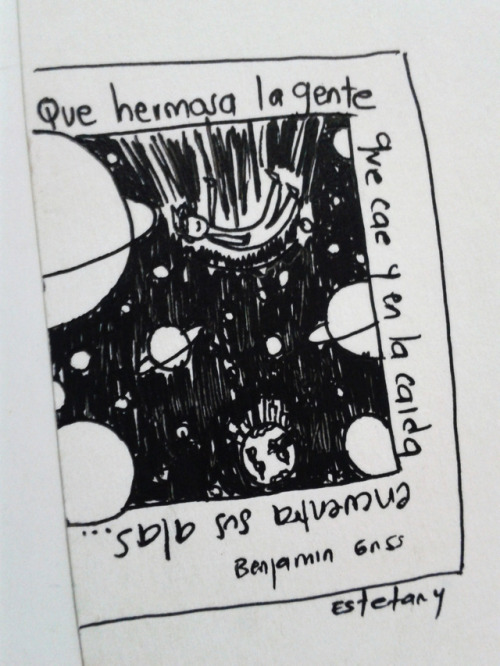 Que hermosa la gente
que cae y en la caída
encuentra sus alas...
Benjamin Griss
Estefany